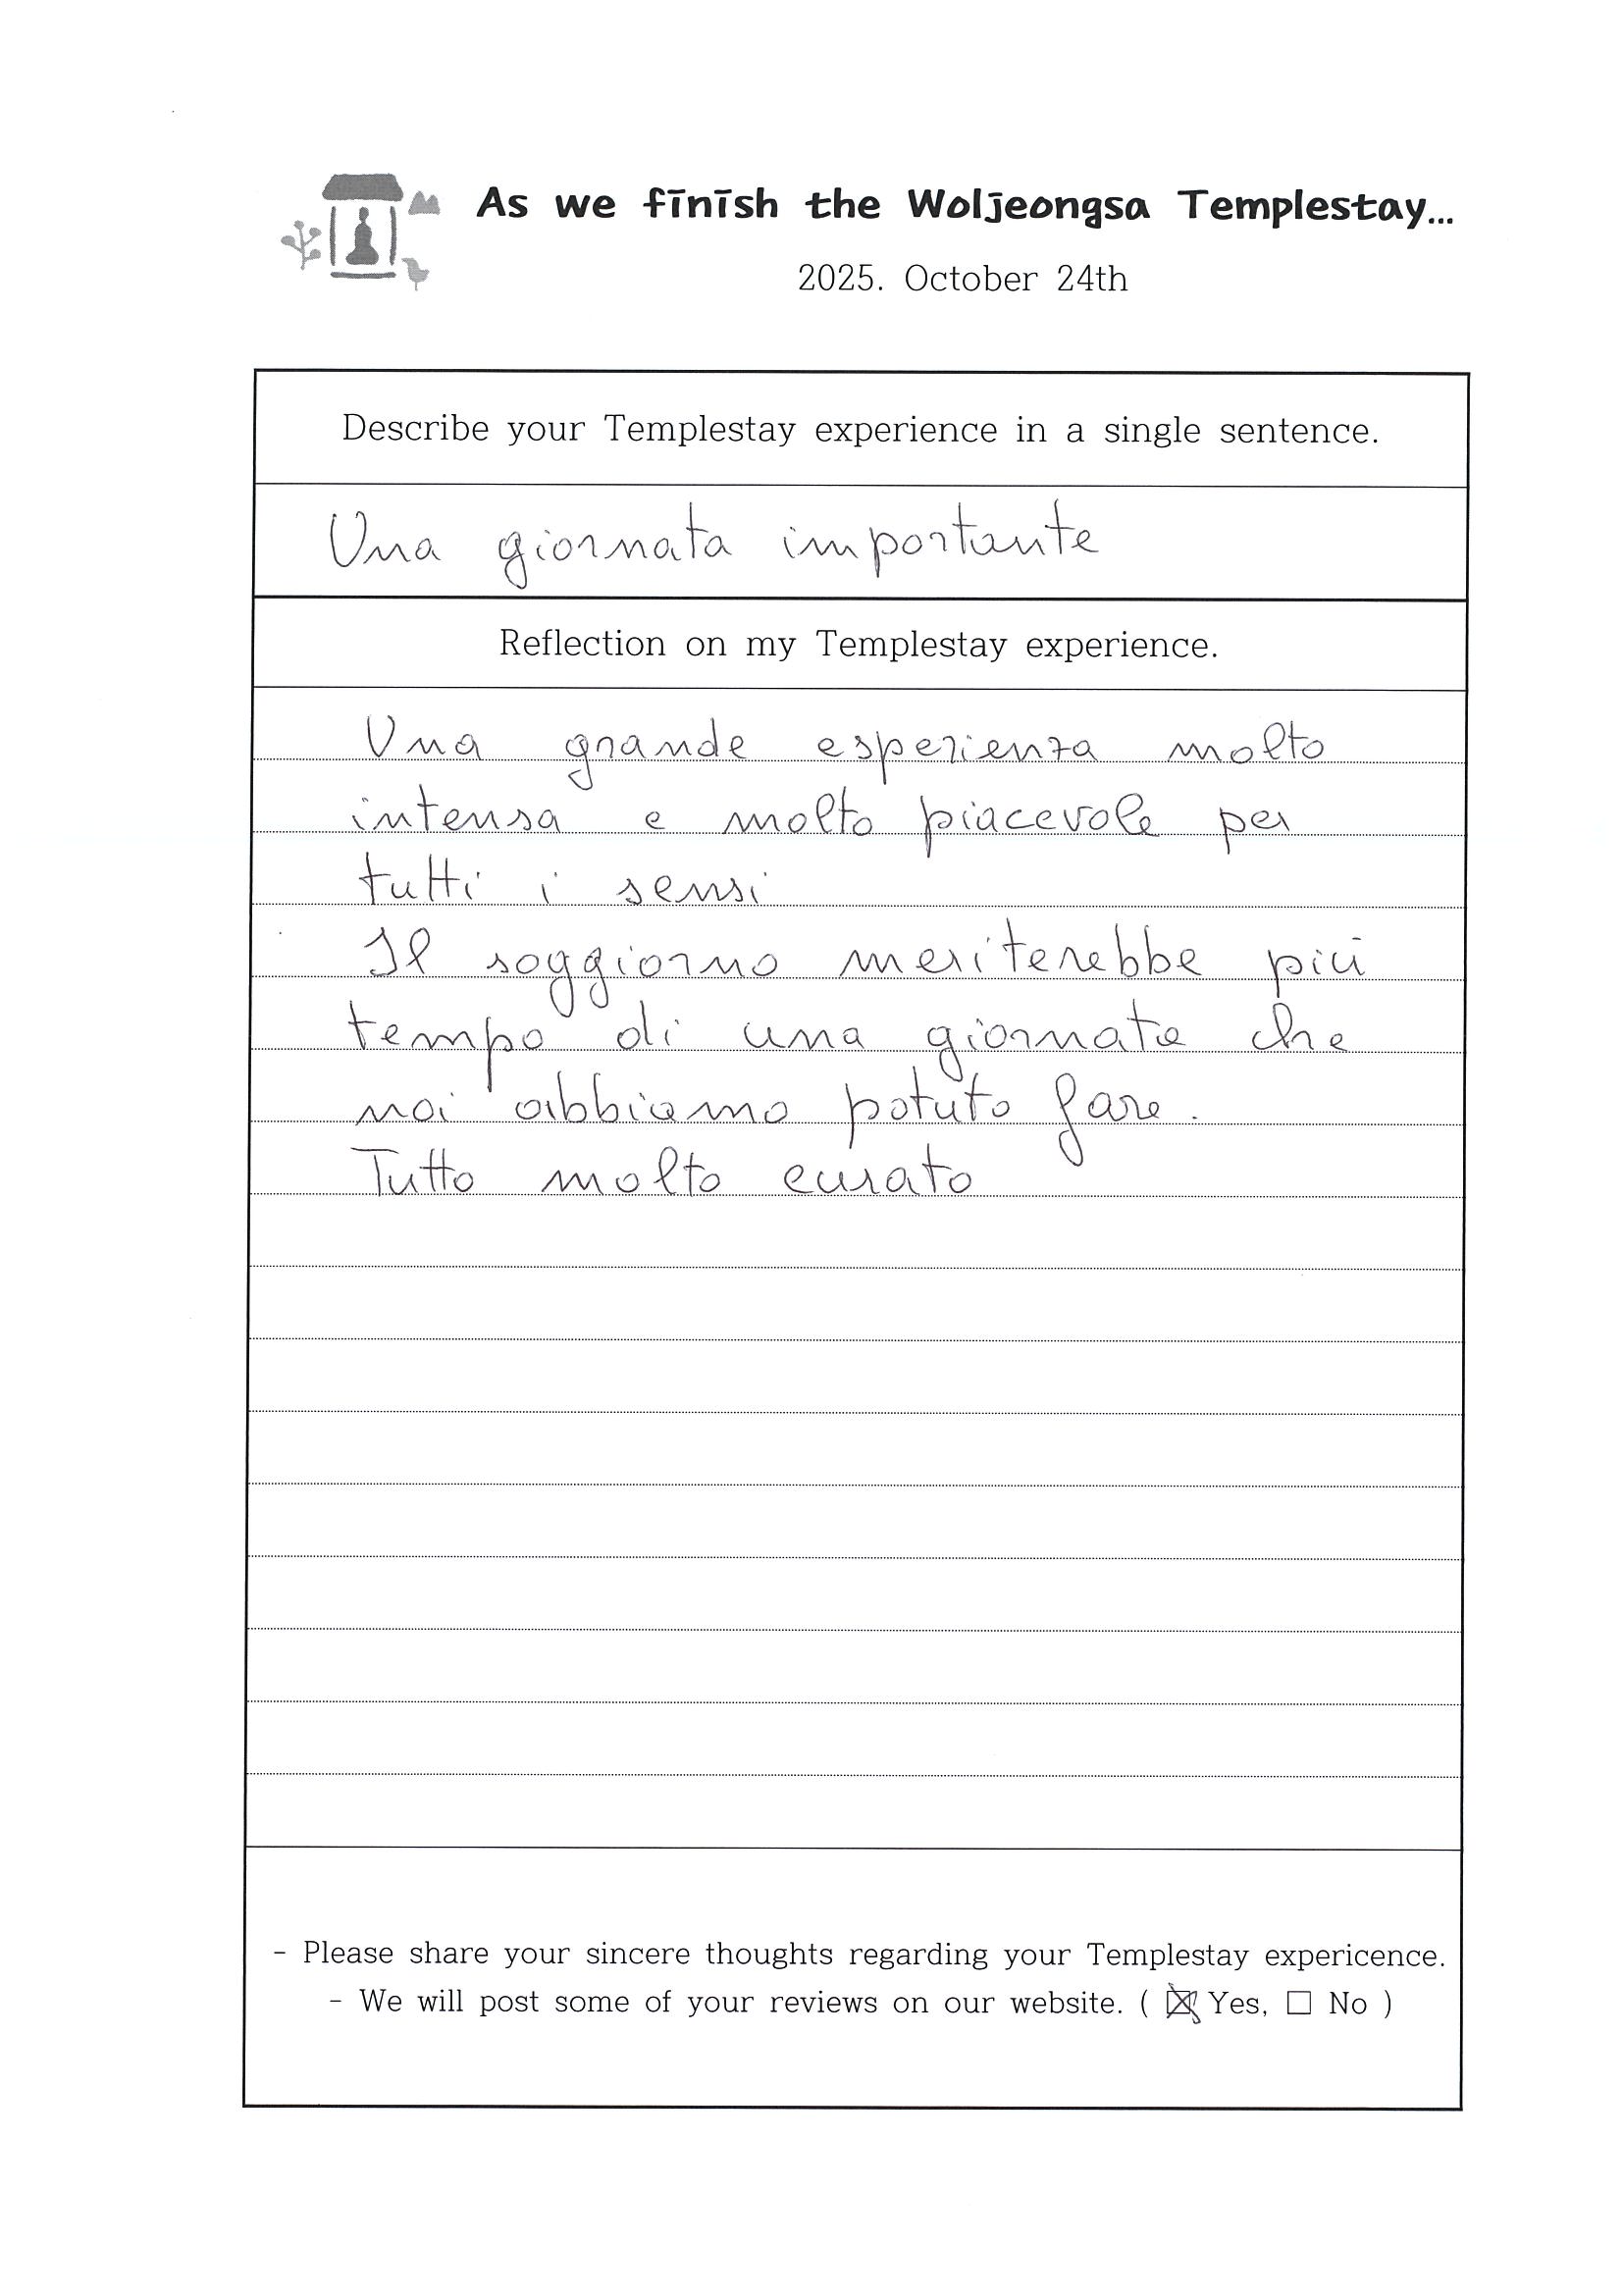 As we finish the Woljeongsa Templestay...
2025. October 24th
Describe your Templestay experience in a single sentence.
Una giornata importante
Reflection on my Templestay experience.
Una grande esperienza molto
intensa e molto piacevole per
tutti i sensi
Il soggiorno meriterebbe più
tempo di una giornata che
noi abbiamo potuto fare.
Tutto molto curato
- Please share your sincere thoughts regarding your Templestay expericence.
- We will post some of your reviews on our website. ( ☒ Yes, ☐ No )